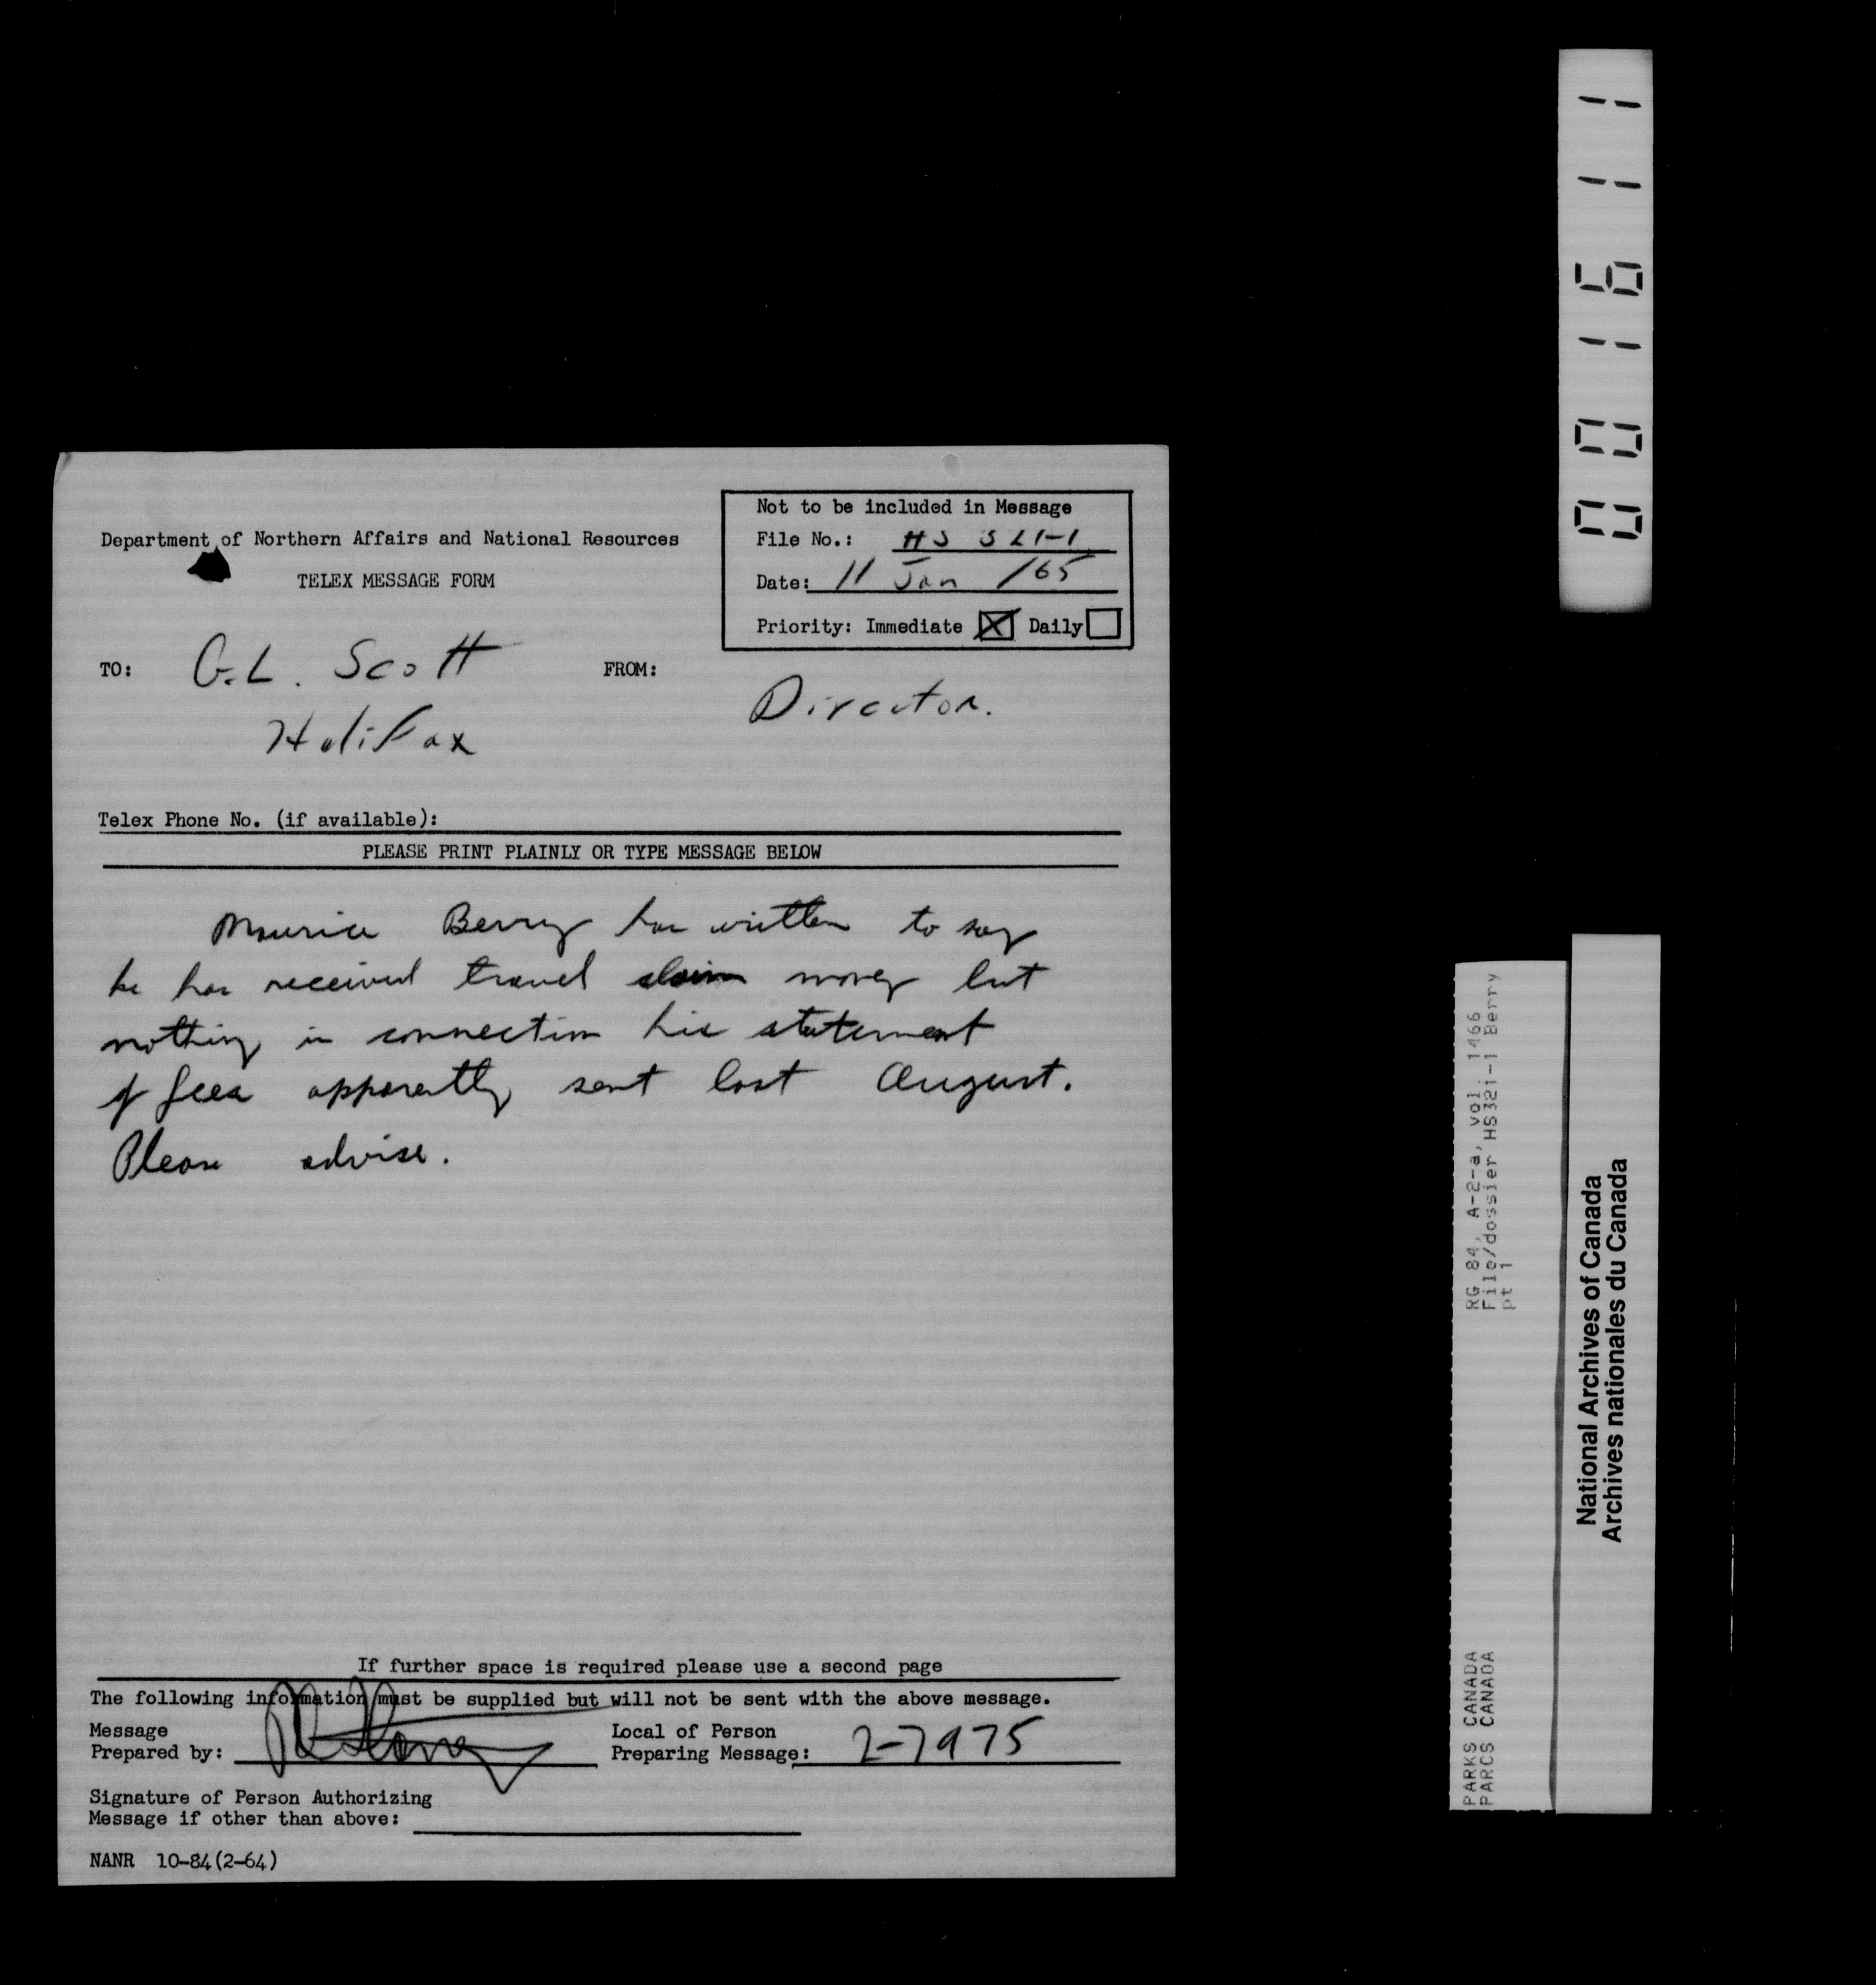 Not to be included in Message
File No.: HS 321-1
Date: 11 Jan /65
Priority: Immediate Daily
Department of Northern Affairs and National Resources
TELEX MESSAGE FORM
TO: G.L. Scott
Halifax
FROM:
Director.
Telex Phone No. (if available):
PLEASE PRINT PLAINLY OR TYPE MESSAGE BELOW
Maurice Berry has written to say
he has received travel claim money but
nothing in connection his statement
of fees apparently sent last August.
Please advise.
If further space is required please use a second page
The following information must be supplied but will not be sent with the above message.
Message
Prepared by:
Local of Person
Preparing Message: 2-7975
Signature of Person Authorizing
Message if other than above:
NANR 10-84(2-64)
001611
RG 84, A-2-a, vol. 1466
File/dossier HS321-1 Berry
pt 1
PARKS CANADA
PARCS CANADA
National Archives of Canada
Archives nationales du Canada